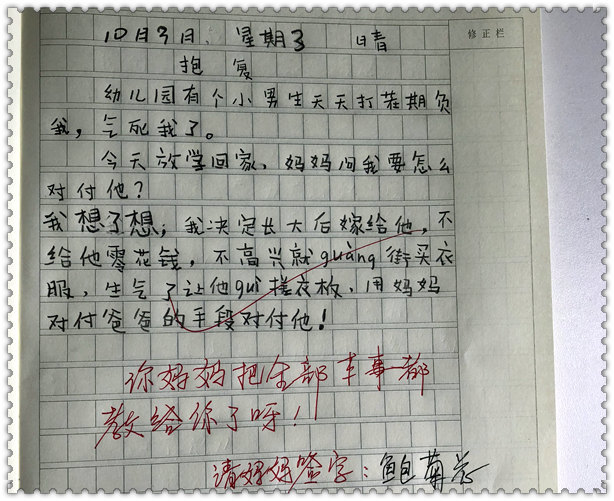 修正栏
10月9日、星期3 晴
抱复
幼儿园有个小男生天天打茬期负
我,气死我了。
今天放学回家,妈妈问我要怎么
对付他?
我想了想,我决定长大后嫁给他,不
给他零花钱,不高兴就guàng街买衣
服,生气了让他guì搓衣板,用妈妈
对付爸爸的手段对付他!
你妈妈把全部本事都
教给你了呀!
请妈妈签字:鲍菊芳